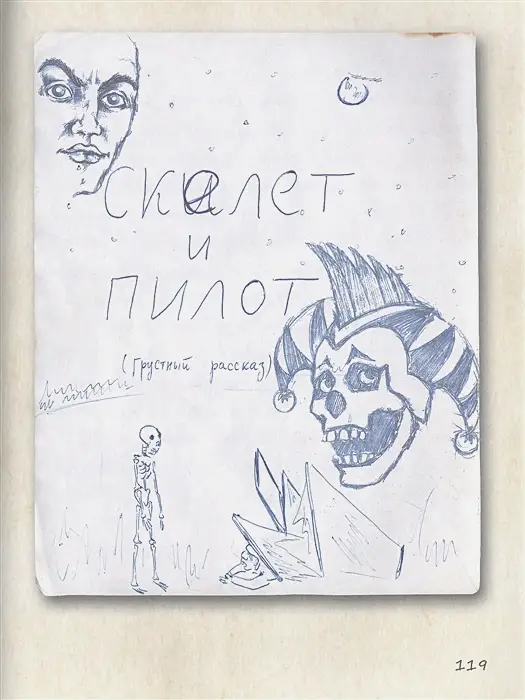 СКЕЛЕТ
И
ПИЛОТ
(Грустный рассказ)
119